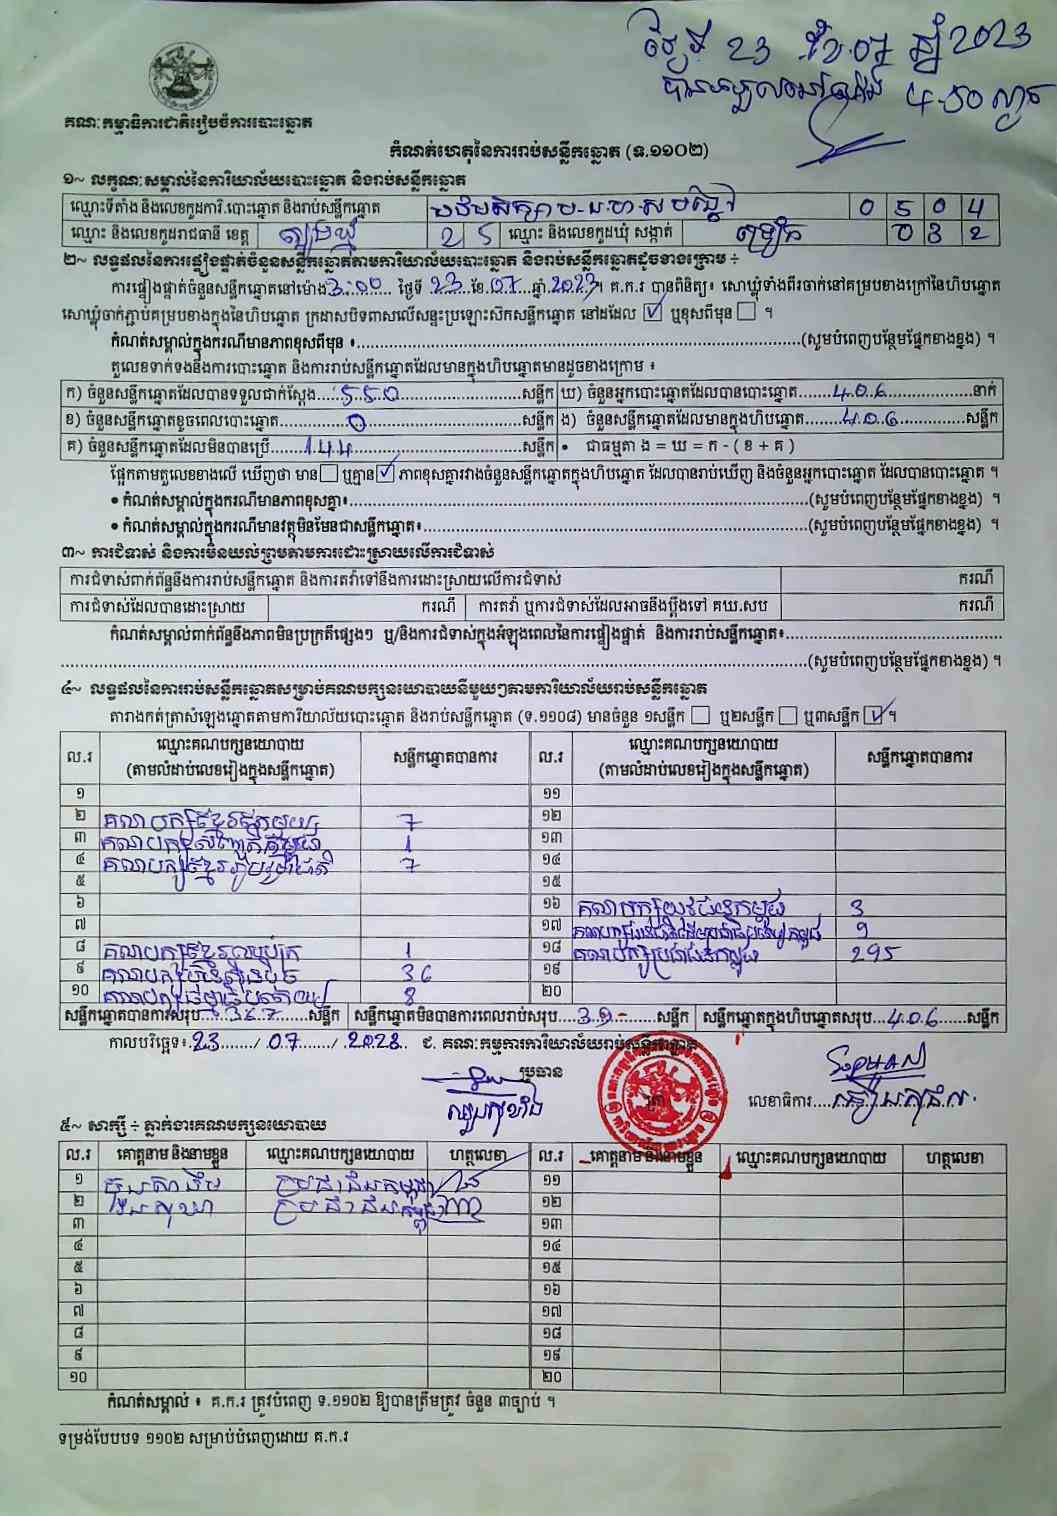 ថ្ងៃទី 23 ខែ 07 ឆ្នាំ 2023
4:50 ល្ងាច
គណៈកម្មាធិការជាតិរៀបចំការបោះឆ្នោត
កំណត់ហេតុនៃការរាប់សន្លឹកឆ្នោត (ទ.១១០២)
១~ លក្ខណៈសម្គាល់នៃការិយាល័យបោះឆ្នោត និងរាប់សន្លឹកឆ្នោត
ឈ្មោះទីតាំង និងលេខកូដការិ.បោះឆ្នោត និងរាប់សន្លឹកឆ្នោត 0 5 0 4
ឈ្មោះ និងលេខកូដរាជធានី ខេត្ត ត្បូងឃ្មុំ 2 5 ឈ្មោះ និងលេខកូដឃុំ សង្កាត់ 0 3 2
២~ លទ្ធផលនៃការផ្ទៀងផ្ទាត់ចំនួនសន្លឹកឆ្នោតតាមការិយាល័យបោះឆ្នោត និងរាប់សន្លឹកឆ្នោតដូចខាងក្រោម ÷
ការផ្ទៀងផ្ទាត់ចំនួនសន្លឹកឆ្នោតនៅម៉ោង 3:00 ថ្ងៃទី 23 ខែ 07 ឆ្នាំ 2023 ។ គ.ក.រ បានពិនិត្យ៖ សោឃ្លុំទាំងពីរចាក់នៅគម្របខាងក្រៅនៃហិបឆ្នោត
សោឃ្លុំចាក់ភ្ជាប់គម្របខាងក្នុងនៃហិបឆ្នោត ក្រដាសបិទពាសលើសន្ទះប្រឡោះសិកសន្លឹកឆ្នោត នៅដដែល ☑ ឬខុសពីមុន ☐ ។
កំណត់សម្គាល់ក្នុងករណីមានភាពខុសពីមុន ៖ (សូមបំពេញបន្ថែមផ្នែកខាងខ្នង) ។
តួលេខទាក់ទងនឹងការបោះឆ្នោត និងការរាប់សន្លឹកឆ្នោតដែលមានក្នុងហិបឆ្នោតមានដូចខាងក្រោម ៖
ក) ចំនួនសន្លឹកឆ្នោតដែលបានទទួលជាក់ស្តែង 550 សន្លឹក ឃ) ចំនួនអ្នកបោះឆ្នោតដែលបានបោះឆ្នោត 406 នាក់
ខ) ចំនួនសន្លឹកឆ្នោតខូចពេលបោះឆ្នោត 0 សន្លឹក ង) ចំនួនសន្លឹកឆ្នោតដែលមានក្នុងហិបឆ្នោត 406 សន្លឹក
គ) ចំនួនសន្លឹកឆ្នោតដែលមិនបានប្រើ 144 សន្លឹក • ជាធម្មតា ង = ឃ = ក - ( ខ + គ )
ផ្អែកតាមតួលេខខាងលើ ឃើញថា មាន ☐ ឬគ្មាន ☑ ភាពខុសគ្នារវាងចំនួនសន្លឹកឆ្នោតក្នុងហិបឆ្នោត ដែលបានរាប់ឃើញ និងចំនួនអ្នកបោះឆ្នោត ដែលបានបោះឆ្នោត ។
• កំណត់សម្គាល់ក្នុងករណីមានភាពខុសគ្នា៖ (សូមបំពេញបន្ថែមផ្នែកខាងខ្នង) ។
• កំណត់សម្គាល់ក្នុងករណីមានវត្ថុមិនមែនជាសន្លឹកឆ្នោត៖ (សូមបំពេញបន្ថែមផ្នែកខាងខ្នង) ។
៣~ ការជំទាស់ និងការមិនយល់ព្រមតាមការដោះស្រាយលើការជំទាស់
ការជំទាស់ពាក់ព័ន្ធនឹងការរាប់សន្លឹកឆ្នោត និងការតវ៉ាទៅនឹងការដោះស្រាយលើការជំទាស់ ករណី
ការជំទាស់ដែលបានដោះស្រាយ ករណី ការតវ៉ា ឬការជំទាស់ដែលអាចនឹងប្តឹងទៅ គឃ.សប ករណី
កំណត់សម្គាល់ពាក់ព័ន្ធនឹងភាពមិនប្រក្រតីផ្សេងៗ ឬ/និងការជំទាស់ក្នុងអំឡុងពេលនៃការផ្ទៀងផ្ទាត់ និងការរាប់សន្លឹកឆ្នោត៖
(សូមបំពេញបន្ថែមផ្នែកខាងខ្នង) ។
៤~ លទ្ធផលនៃការរាប់សន្លឹកឆ្នោតសម្រាប់គណបក្សនយោបាយនីមួយៗតាមការិយាល័យរាប់សន្លឹកឆ្នោត
តារាងកត់ត្រាសំឡេងឆ្នោតតាមការិយាល័យបោះឆ្នោត និងរាប់សន្លឹកឆ្នោត (ទ.១១០៨) មានចំនួន ១សន្លឹក ☐ ឬ២សន្លឹក ☐ ឬ៣សន្លឹក ☑ ។
ល.រ ឈ្មោះគណបក្សនយោបាយ (តាមលំដាប់លេខរៀងក្នុងសន្លឹកឆ្នោត) សន្លឹកឆ្នោតបានការ ល.រ ឈ្មោះគណបក្សនយោបាយ (តាមលំដាប់លេខរៀងក្នុងសន្លឹកឆ្នោត) សន្លឹកឆ្នោតបានការ
១ ១១
២ គណបក្ស 7 ១២
៣ គណបក្ស 1 ១៣
៤ គណបក្សខ្មែររួបរួមជាតិ 7 ១៤
៥ ១៥
៦ ១៦ គណបក្សយុវជនកម្ពុជា 3
៧ ១៧ គណបក្ស 9
៨ គណបក្ស 1 ១៨ គណបក្សប្រជាជនកម្ពុជា 295
៩ គណបក្សហ្វ៊ុនស៊ិនប៉ិច 36 ១៩
១០ គណបក្ស 8 ២០
សន្លឹកឆ្នោតបានការសរុប 367 សន្លឹក សន្លឹកឆ្នោតមិនបានការពេលរាប់សរុប 39 សន្លឹក សន្លឹកឆ្នោតក្នុងហិបឆ្នោតសរុប 406 សន្លឹក
កាលបរិច្ឆេទ៖ 23 / 07 / 2023 ជ. គណៈកម្មការការិយាល័យរាប់សន្លឹកឆ្នោត
ប្រធាន
លេខាធិការ
៥~ សាក្សី ÷ ភ្នាក់ងារគណបក្សនយោបាយ
ល.រ គោត្តនាម និងនាមខ្លួន ឈ្មោះគណបក្សនយោបាយ ហត្ថលេខា ល.រ គោត្តនាម និងនាមខ្លួន ឈ្មោះគណបក្សនយោបាយ ហត្ថលេខា
១ ប្រជាជនកម្ពុជា ១១
២ ប្រជាជនកម្ពុជា ១២
៣ ១៣
៤ ១៤
៥ ១៥
៦ ១៦
៧ ១៧
៨ ១៨
៩ ១៩
១០ ២០
កំណត់សម្គាល់ ៖ គ.ក.រ ត្រូវបំពេញ ទ.១១០២ ឱ្យបានត្រឹមត្រូវ ចំនួន ៣ច្បាប់ ។
ទម្រង់បែបបទ ១១០២ សម្រាប់បំពេញដោយ គ.ក.រ